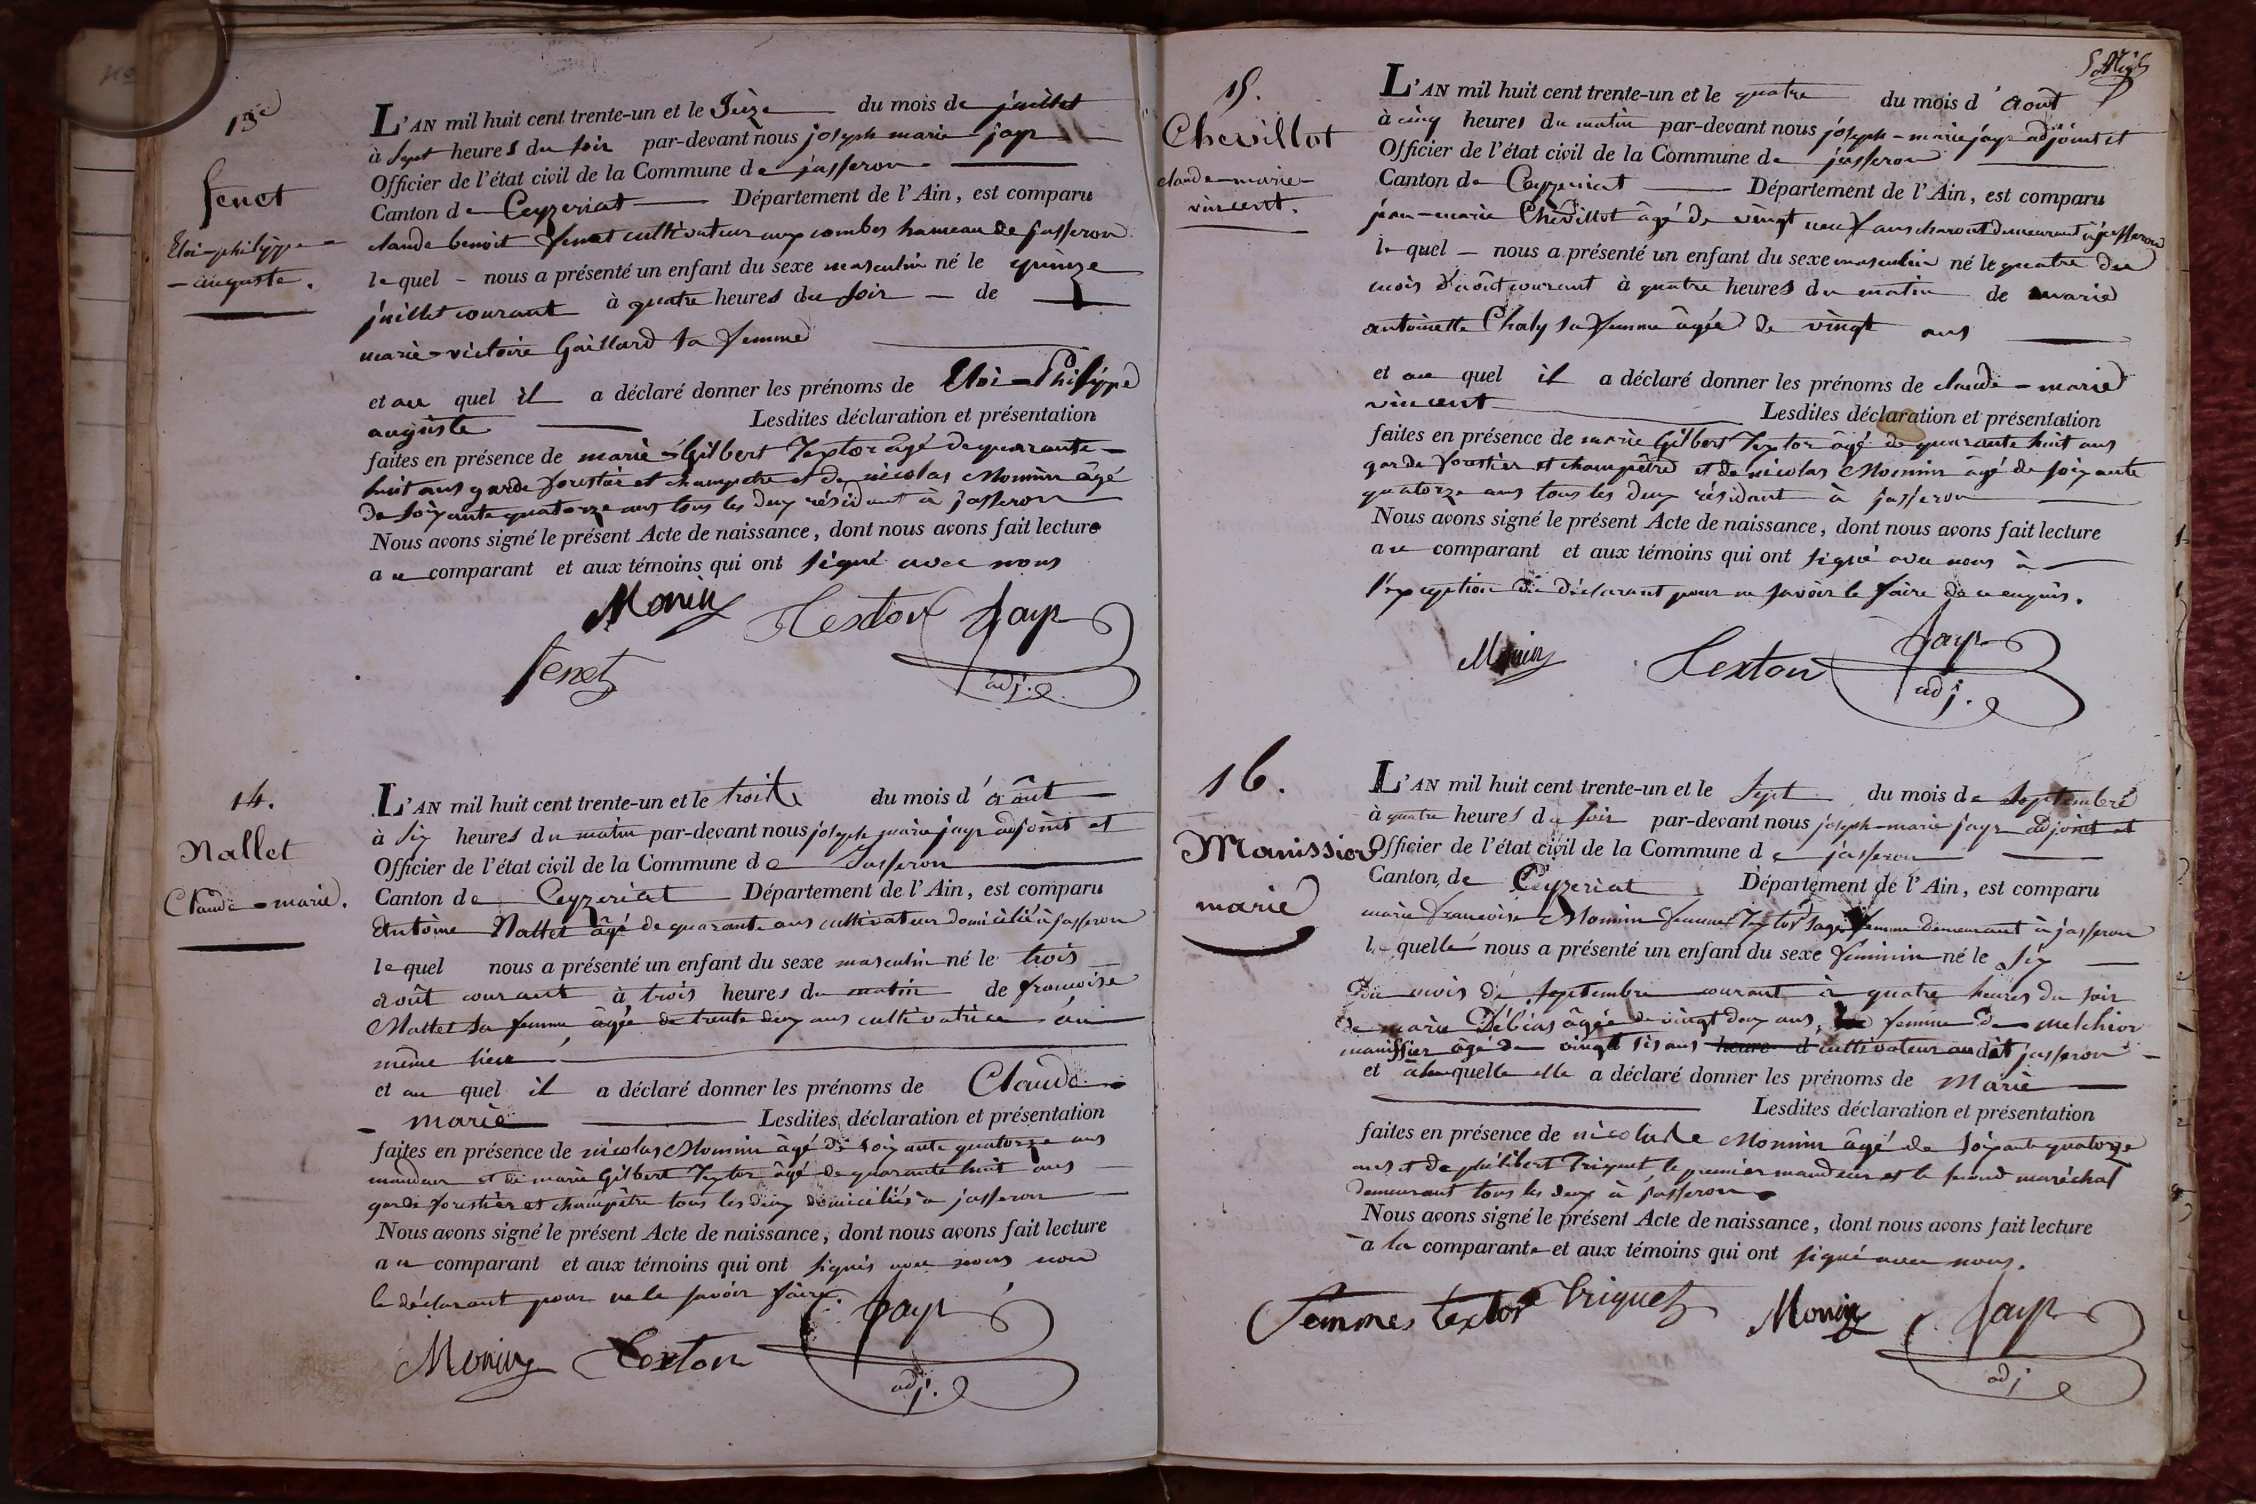 13e
fenet
Eloi-philippe-
-auguste.
L'AN mil huit cent trente-un et le Seize du mois de juillet
à Sept heures du soir par-devant nous joseph marie jayr
Officier de l'état civil de la Commune de jasseron
Canton de Ceyzeriat Département de l'Ain, est comparu
claude benoit fenet cultivateur aux combes hameau de jasseron
lequel - nous a présenté un enfant du sexe masculin né le quinze
juillet courant à quatre heures du soir - de
marie-victoire Gaillard sa femme
et au quel il a déclaré donner les prénoms de Eloi-Philippe
auguste Lesdites déclaration et présentation
faites en présence de marie-Gilbert Textor âgé de quarante-
huit ans garde forestier et champetre et de nicolas Monnin âgé
de soixante quatorze ans tous les deux résidant à jasseron
Nous avons signé le présent Acte de naissance, dont nous avons fait lecture
au comparant et aux témoins qui ont signé avec nous
Monin Textor Jayr
fenet adj.
14.
Nallet
Claude-marie.
L'AN mil huit cent trente-un et le trois du mois d'août
à six heures du matin par-devant nous joseph marie jayr adjoint et
Officier de l'état civil de la Commune de Jasseron
Canton de Ceyzeriat Département de l'Ain, est comparu
Antoine Nallet âgé de quarante ans cultivateur domicilié à jasseron
lequel nous a présenté un enfant du sexe masculin né le trois
août courant à trois heures du matin de francoise
Nallet sa femme âgée de trente deux ans cultivatrice au
même lieu
et au quel il a déclaré donner les prénoms de Claude
- marie Lesdites déclaration et présentation
faites en présence de nicolas Monnin âgé de soixante quatorze ans
mandeur et de marie Gilbert Textor âgé de quarante huit ans
garde forestier et champêtre tous les deux domiciliés à jasseron
Nous avons signé le présent Acte de naissance, dont nous avons fait lecture
au comparant et aux témoins qui ont signés avec nous non
le déclarant pour ne le savoir faire.
Monin Textor Jayr
adj.
15.
Chevillot
claude-marie-
vincent.
L'AN mil huit cent trente-un et le quatre du mois d'Août
à cinq heures du matin par-devant nous joseph-marie jayr adjoint et
Officier de l'état civil de la Commune de jasseron
Canton de Ceyzeriat Département de l'Ain, est comparu
jean-marie Chevillot âgé de vingt neuf ans charon demeurant à jasseron
lequel - nous a présenté un enfant du sexe masculin né le quatre du
mois d'août courant à quatre heures du matin de marie
antoinette Chaly sa femme âgée de vingt ans
et au quel il a déclaré donner les prénoms de claude-marie
vincent Lesdites déclaration et présentation
faites en présence de marie Gilbert Textor âgé de quarante huit ans
garde forestier et champêtre et de nicolas Monnin âgé de soixante
quatorze ans tous les deux résidant à jasseron
Nous avons signé le présent Acte de naissance, dont nous avons fait lecture
au comparant et aux témoins qui ont signé avec nous à
l'exception du déclarant pour ne savoir le faire de ce enquis.
Monin Textor Jayr
adj.
16.
Manissier
marie
L'AN mil huit cent trente-un et le Sept du mois de Septembre
à quatre heures du soir par-devant nous joseph-marie jayr adjoint et
Officier de l'état civil de la Commune de jasseron
Canton de Ceyzeriat Département de l'Ain, est comparu
marie francoise Monnin femme Textor sage femme demeurant à jasseron
lequelle nous a présenté un enfant du sexe féminin né le six
du mois de septembre courant à quatre heures du soir
de marie Débias âgée de vingt deux ans, femme de melchior
manissier âgé de vingt six ans cultivateur au dit jasseron -
et à laquelle elle a déclaré donner les prénoms de Marie
Lesdites déclaration et présentation
faites en présence de nicolas Monnin âgé de soixante quatorze
ans et de philibert Triquet le premier mandeur et le second maréchal
demeurant tous les deux à jasseron
Nous avons signé le présent Acte de naissance, dont nous avons fait lecture
a la comparante et aux témoins qui ont signé avec nous.
femmes textor Triquet Monin Jayr
adj